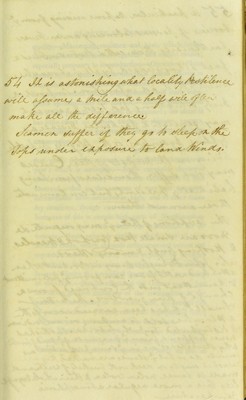 54 It is astonishing what locality Pestilence
will assume, a mile and a half will often
make all the difference
Seamen suffer if they go to sleep in the
Tops under exposure to land Winds.